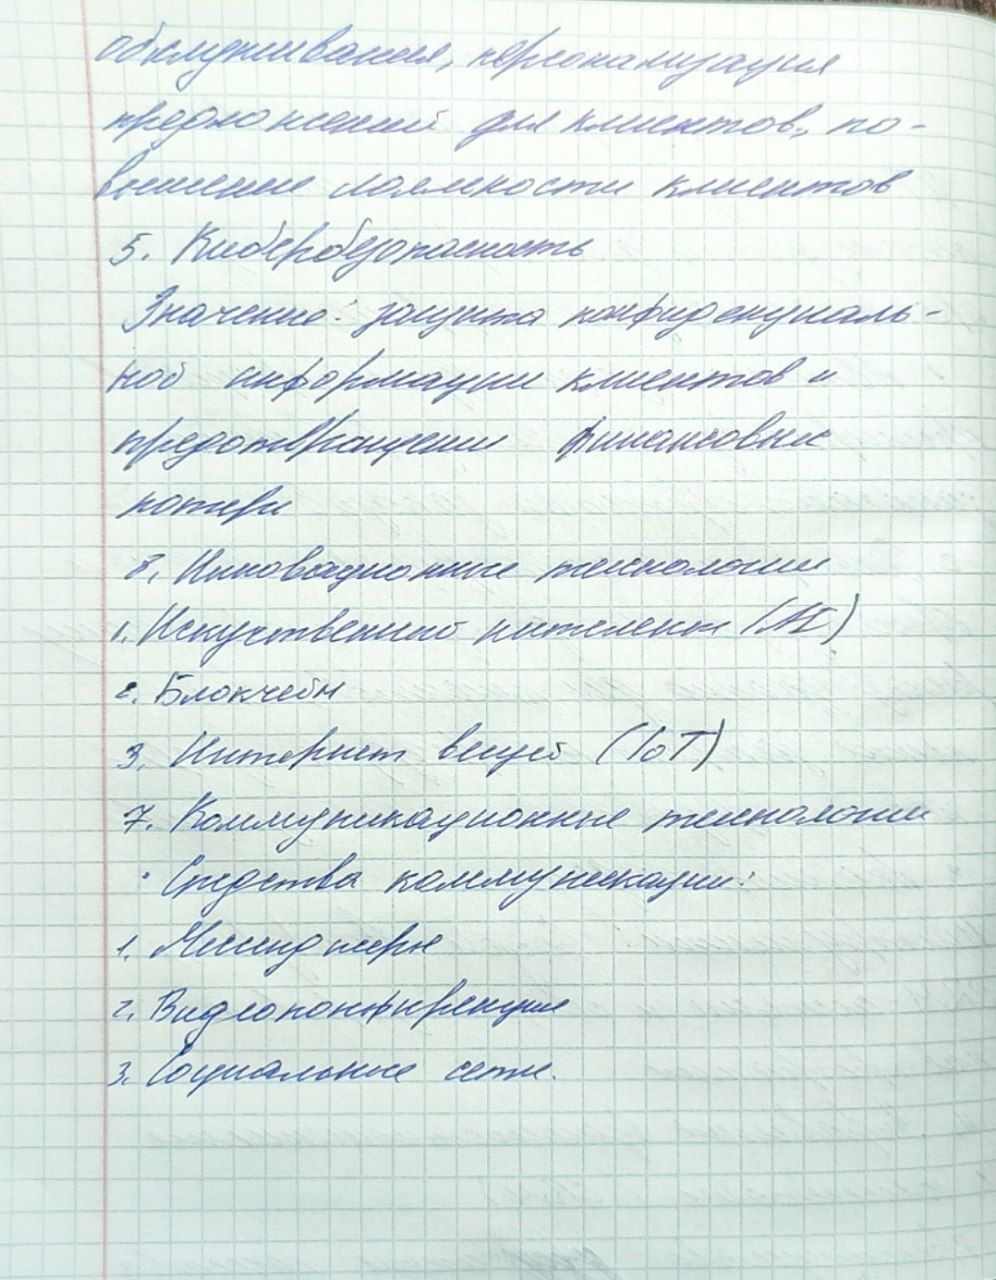 обслуживания, персонализация
предложений для клиентов, по-
вышение лояльности клиентов
5. Кибербезопасность
Значение: защита конфиденциаль-
ной информации клиентов и
предотвращении финансовых
потери
8. Инновационные технологии
1. Искуственный интелект (AI)
2. Блокчейн
3. Интернет вещей (IoT)
7. Коммуникационные технологии
· Средства коммуникации:
1. Мессенджеры
2. Видеоконференции
3. Социальные сети.